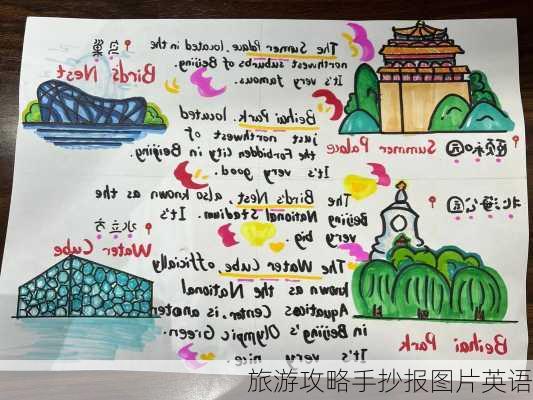 鸟巢
Bird's Nest
The Sumer Palace. located in the
northwest suburbs of Beijing.
It's very famous.
Beihai Park. located
just northwest of
the Forbidden City in Beijing
It's very good.
颐和园
Summer Palace
The Bird's Nest. also known as the
Beijing National Stadium. It's
very big.
北海公园
水立方
Water Cube
The Water Cube officially
known as the National
Center, is
in Beijing's Olympic Green.
It's very nice.
Beihai Park
旅游攻略手抄报图片英语